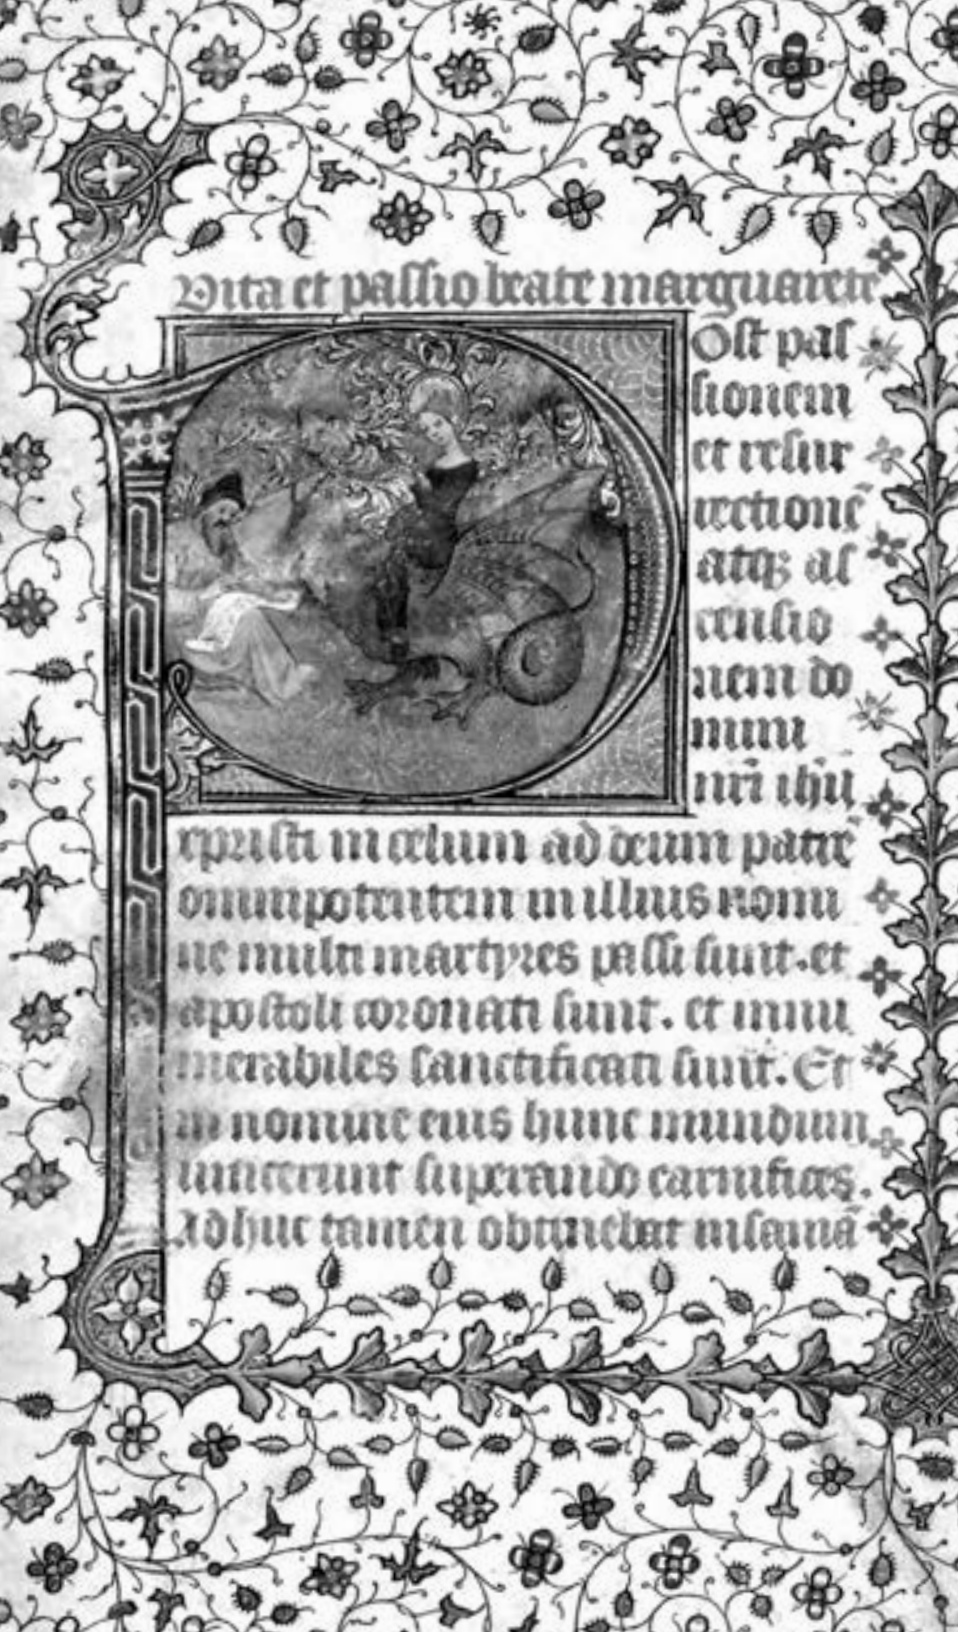 Vita et passio beate marguarete
Ost pas
sionem
et resur
rectionē
atqꝫ as
censio
nem do
mini
nr̄i ihū
xpristi in celum ad deum patrē
omnipotentem in illius nomi
ne multi martyres passi sunt. et
apostoli coronati sunt. et innu
merabiles sanctificati sunt. Et
in nomine eius hunc mundum
uicerunt superando carnifices.
Adhuc tamen obtinebat insaniā